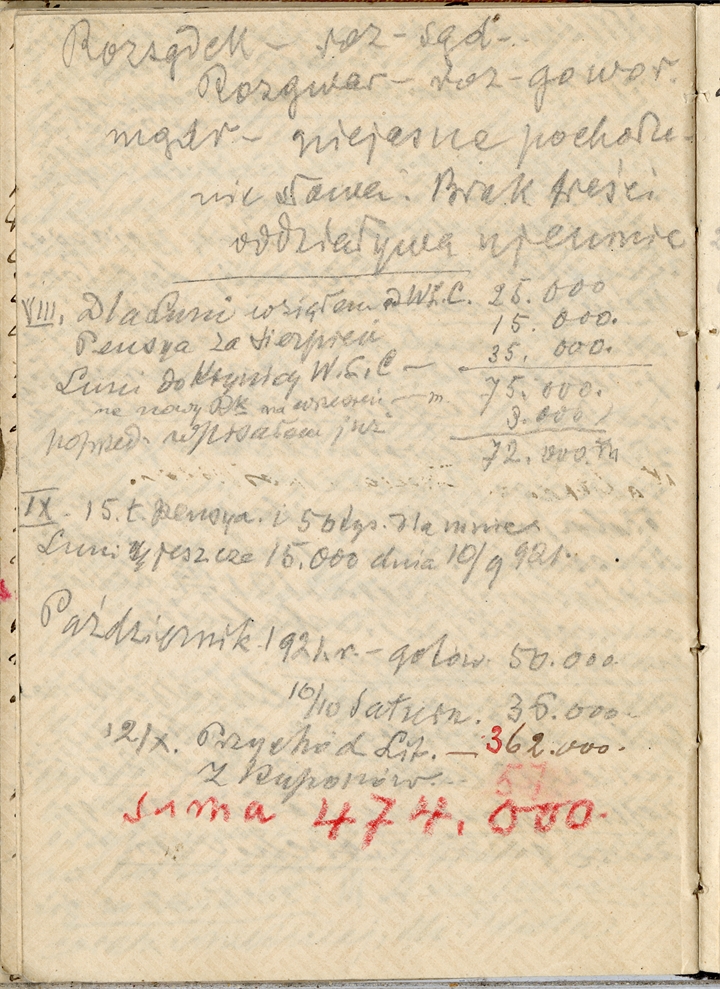 Rozsądek – roz – sąd –
Rozgwar – roz – gowor.
mądr – niejasne pochodze-
nie słowa. Brak treści
oddziaływa ujemnie
VIII. Dla Luni wziąłem W.Ł.C. 25.000
Pensya za sierpień 15.000.
Luni do Krynicy W.Ł.C – 35.000.
75.000.
na nowy na wrzesień – m. 3.000
poprzed. wpisałem już 72.000 m
IX. 15.t. pensya. i 50 tys. dla mnie
Luni jeszcze 15.000 dnia 10/9 921.
Październik 1921.r. – gotów. 50.000
10/10 Saturn. 36.000 –
12/X. Przychód Lit. – 362.000.
Z Kuponów – 57
suma 474.000.